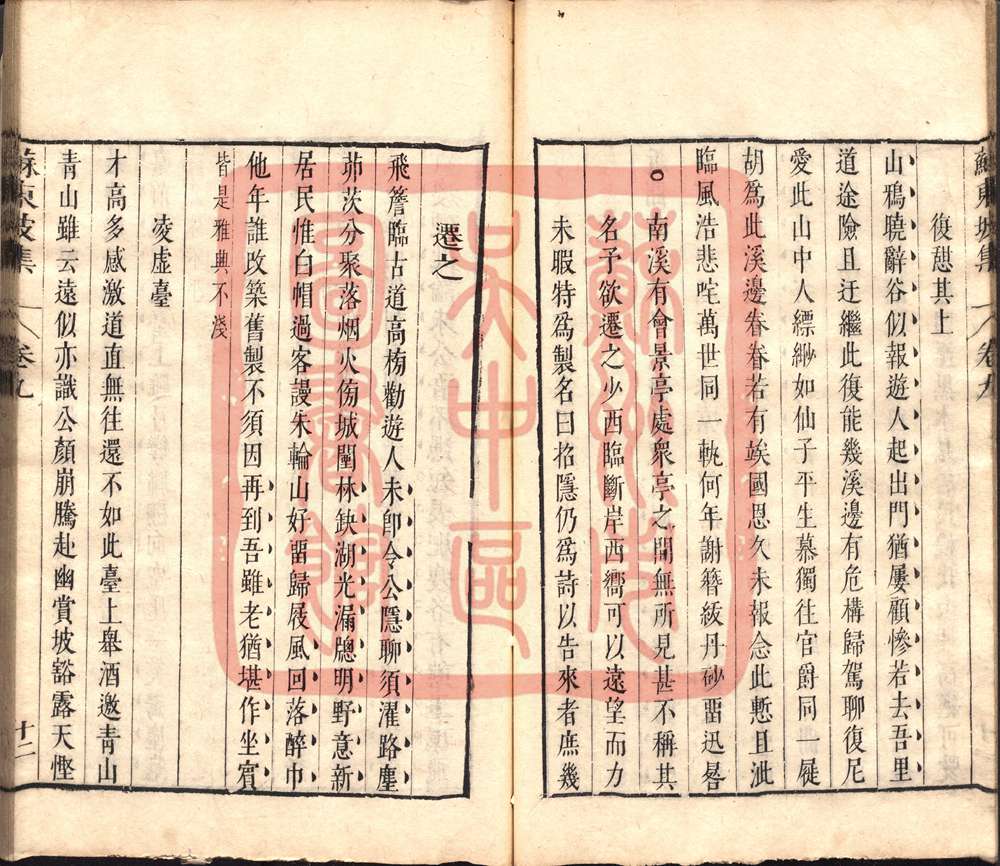 蘇東坡集 卷九
復憩其上
山鴉曉辭谷似報遊人起出門猶屢顧慘若去吾里
道途險且迂繼此復能幾溪邊有危構歸駕聊復尼
愛此山中人縹緲如仙子平生慕獨往官爵同一屣
胡爲此溪邊眷眷若有竢國恩久未報念此慙且泚
臨風浩悲咤萬世同一軌何年謝簪紱丹砂留迅晷
南溪有會景亭處衆亭之間無所見甚不稱其
名予欲遷之少西臨斷岸西嚮可以遠望而力
未暇特爲製名曰招隱仍爲詩以告來者庶幾
遷之
飛簷臨古道高榜勸遊人未卽令公隱聊須濯路塵
茆茨分聚落烟火傍城闉林缺湖光漏牕明野意新
居民惟白帽過客謾朱輪山好留歸屐風回落醉巾
他年誰改築舊製不須因再到吾雖老猶堪作坐賓
皆是雅典不淺
凌虛臺
才高多感激道直無往還不如此臺上舉酒邀青山
青山雖云遠似亦識公顏崩騰赴幽賞坡豁露天慳
蘇東坡集 卷九 十二